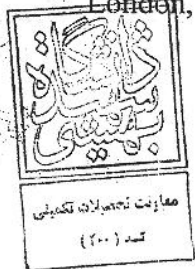 London,
دانشگاه
شهید
بهشتی
معاونت تحصیلات تکمیلی
(۲۰۰)